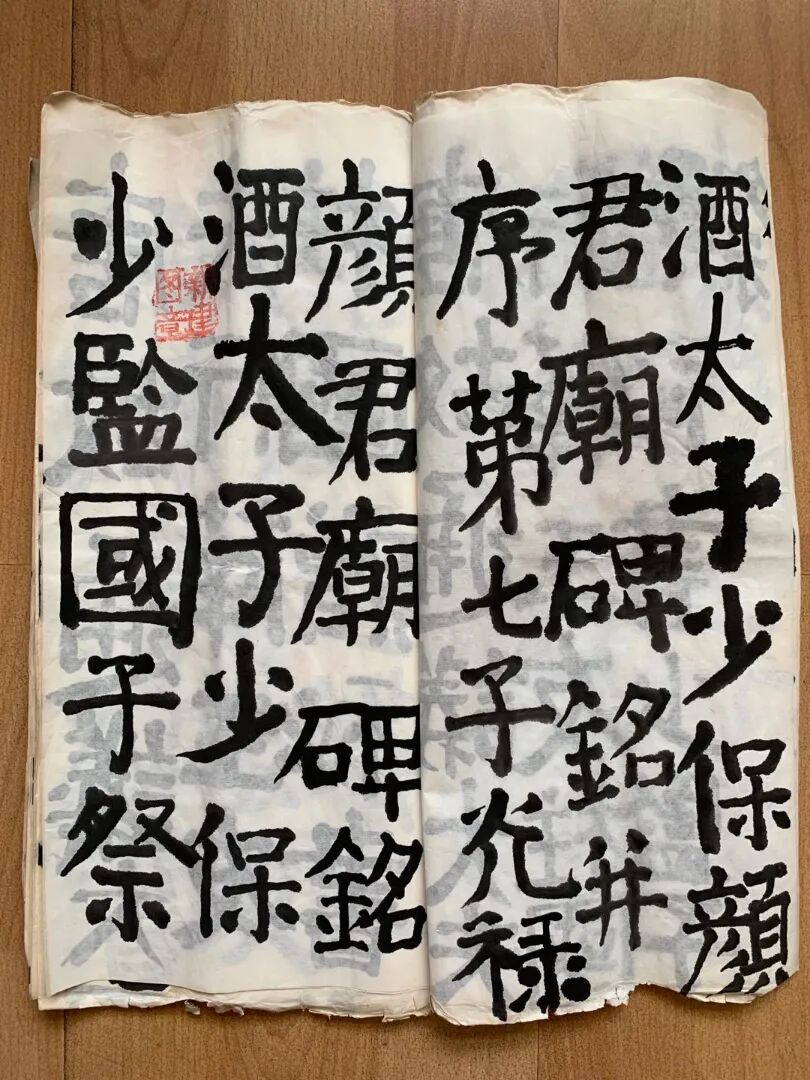 酒太子少保顏
君廟碑銘并
序第七子光禄
顏君廟碑銘
酒太子少保
少監國子祭